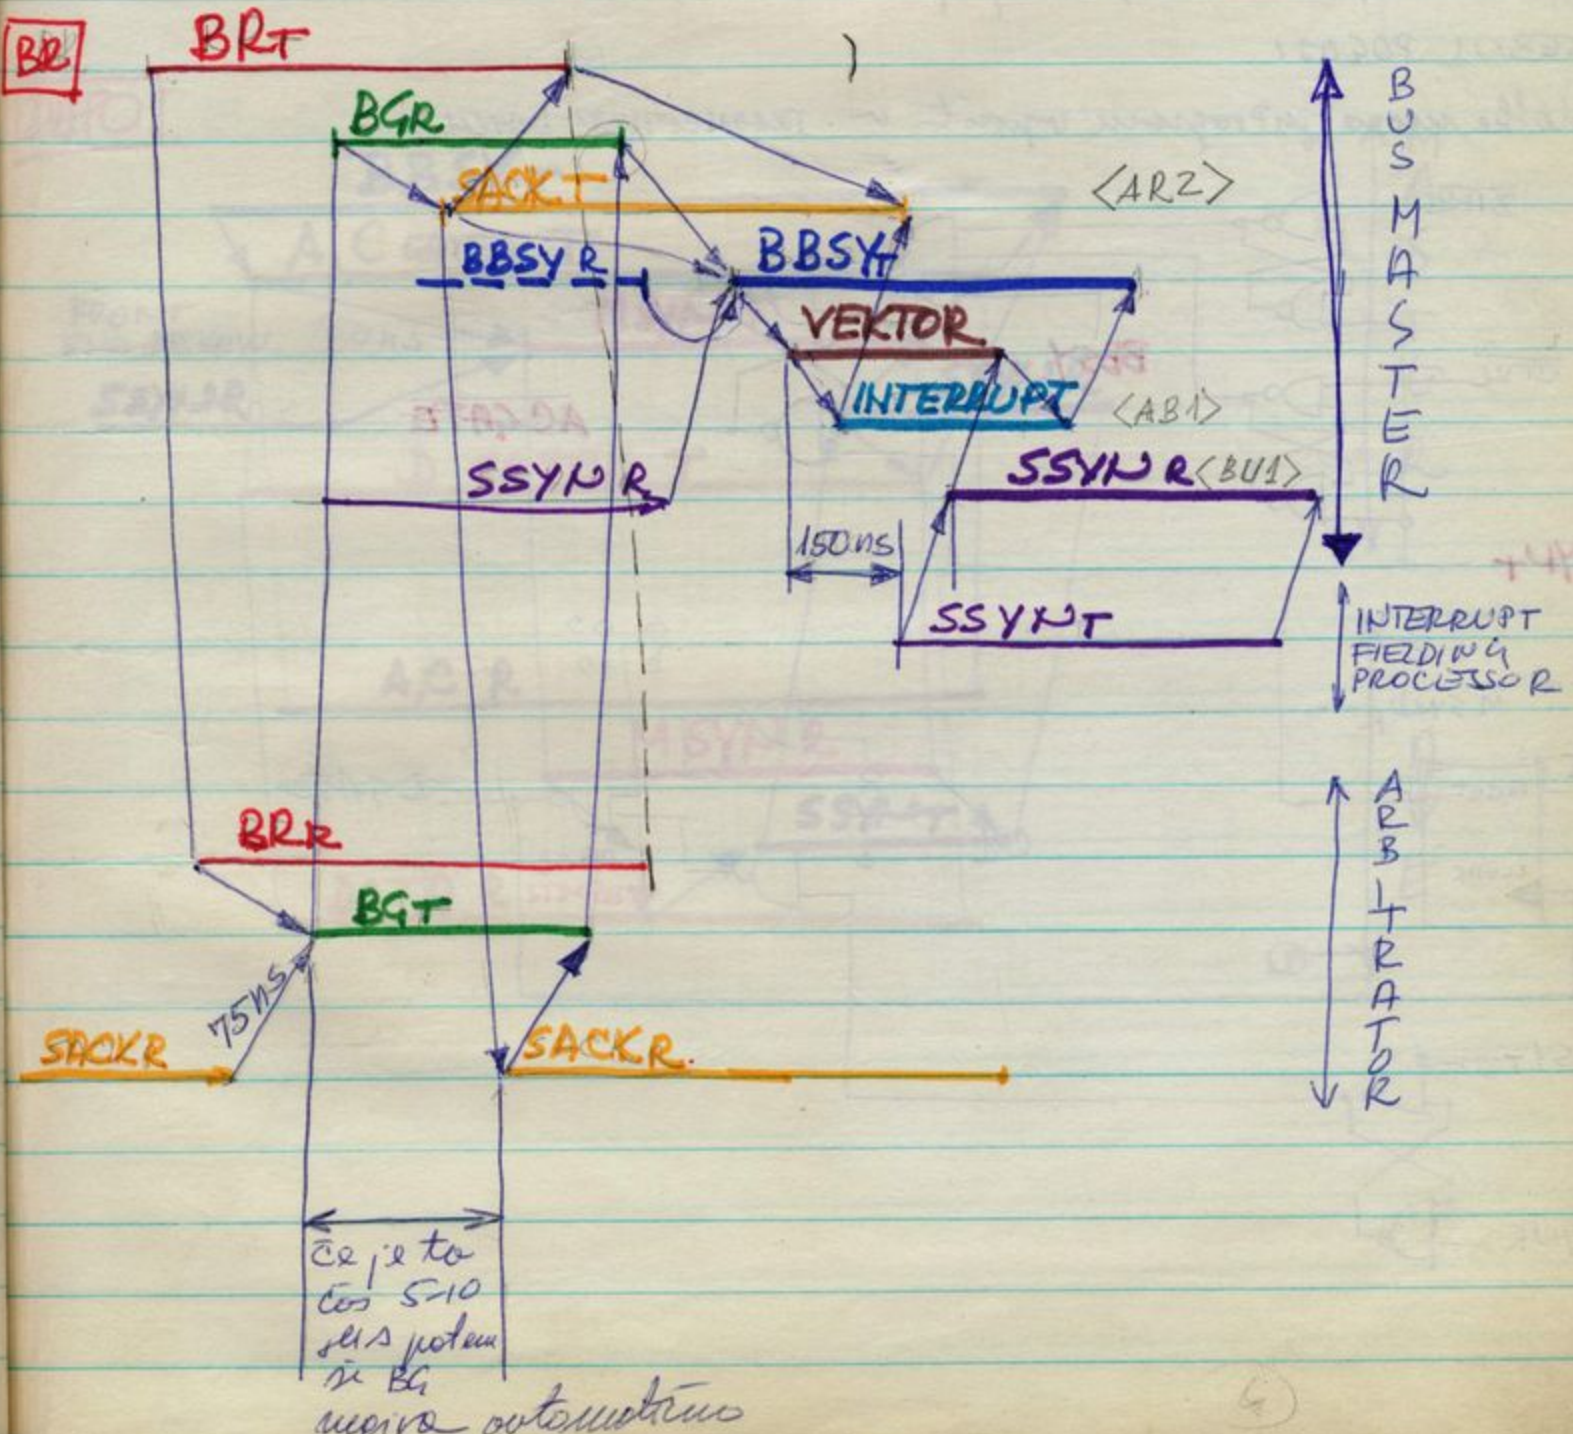 BR
BRT
BGR
SACKT
<AR2>
BBSYR
BBSYT
VEKTOR
INTERRUPT
<AB1>
SSYNR
SSYNR <BU1>
150ns
SSYNT
BUS MASTER
INTERRUPT
FIELDING
PROCESSOR
BRR
BGT
75ns
SACKR
SACKR.
ARBITRATOR
če je ta
čas 5-10
μs potem
se BG
avtomatično